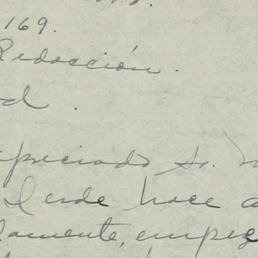 169.
Redacción.
d.
apreciado Sr.
Desde hace a
lamente, empez